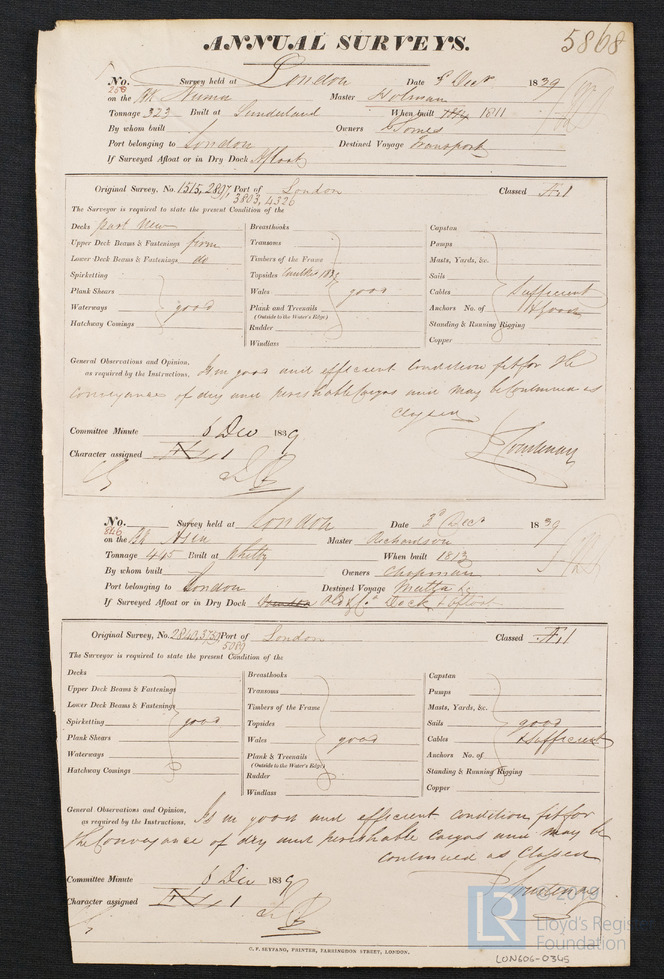 ANNUAL SURVEYS.
5868
No. 256 Survey held at London Date 3 Decr 1839
on the Bk Numa Master Holman
Tonnage 323 Built at Sunderland When built 1811
By whom built Owners J Somes
Port belonging to London Destined Voyage Transport
If Surveyed Afloat or in Dry Dock Afloat
Original Survey, No. 1515, 2897, Port of London Classed Æ 1
3803, 4326
The Surveyor is required to state the present Condition of the
Decks part New Breasthooks Capstan
Upper Deck Beams & Fastenings firm Transoms Pumps
Lower Deck Beams & Fastenings do Timbers of the Frame Masts, Yards, &c.
Spirketting Topsides Caulked Sails
Plank Shears Wales good Cables Sufficient
Waterways good Plank and Treenails Anchors No. of & good
(Outside to the Water's Edge)
Hatchway Comings Rudder Standing & Running Rigging
Windlass Copper
General Observations and Opinion, Is in good and efficient Condition fit for the
as required by the Instructions.
Conveyance of dry and perishable Cargos and may be Continued as
Classed
Courtenay
Committee Minute 6 Dec 1839
Character assigned Æ 1
No. 846 Survey held at London Date 3d Decr 1839
on the Bk Asia Master Richardson
Tonnage 445 Built at Whitby When built 1813
By whom built Owners Chapman
Port belonging to London Destined Voyage Malta &c
If Surveyed Afloat or in Dry Dock Dock & afloat
Original Survey, No. 2840, 3757, Port of London Classed Æ 1
5089
The Surveyor is required to state the present Condition of the
Decks Breasthooks Capstan
Upper Deck Beams & Fastenings Transoms Pumps
Lower Deck Beams & Fastenings Timbers of the Frame Masts, Yards, &c.
Spirketting good Topsides Sails good
Plank Shears Wales good Cables & Sufficient
Waterways Plank & Treenails Anchors No. of
(Outside to the Water's Edge)
Hatchway Comings Rudder Standing & Running Rigging
Windlass Copper
General Observations and Opinion, Is in good and efficient condition fit for
as required by the Instructions.
the Conveyance of dry and perishable Cargos and may be
continued as Classed
Courtenay
Committee Minute 6 Dec 1839
Character assigned Æ 1
C. F. SEYFANG, PRINTER, FARRINGDON STREET, LONDON.
LR
© 2019
Lloyd's Register
Foundation
LON606-0345